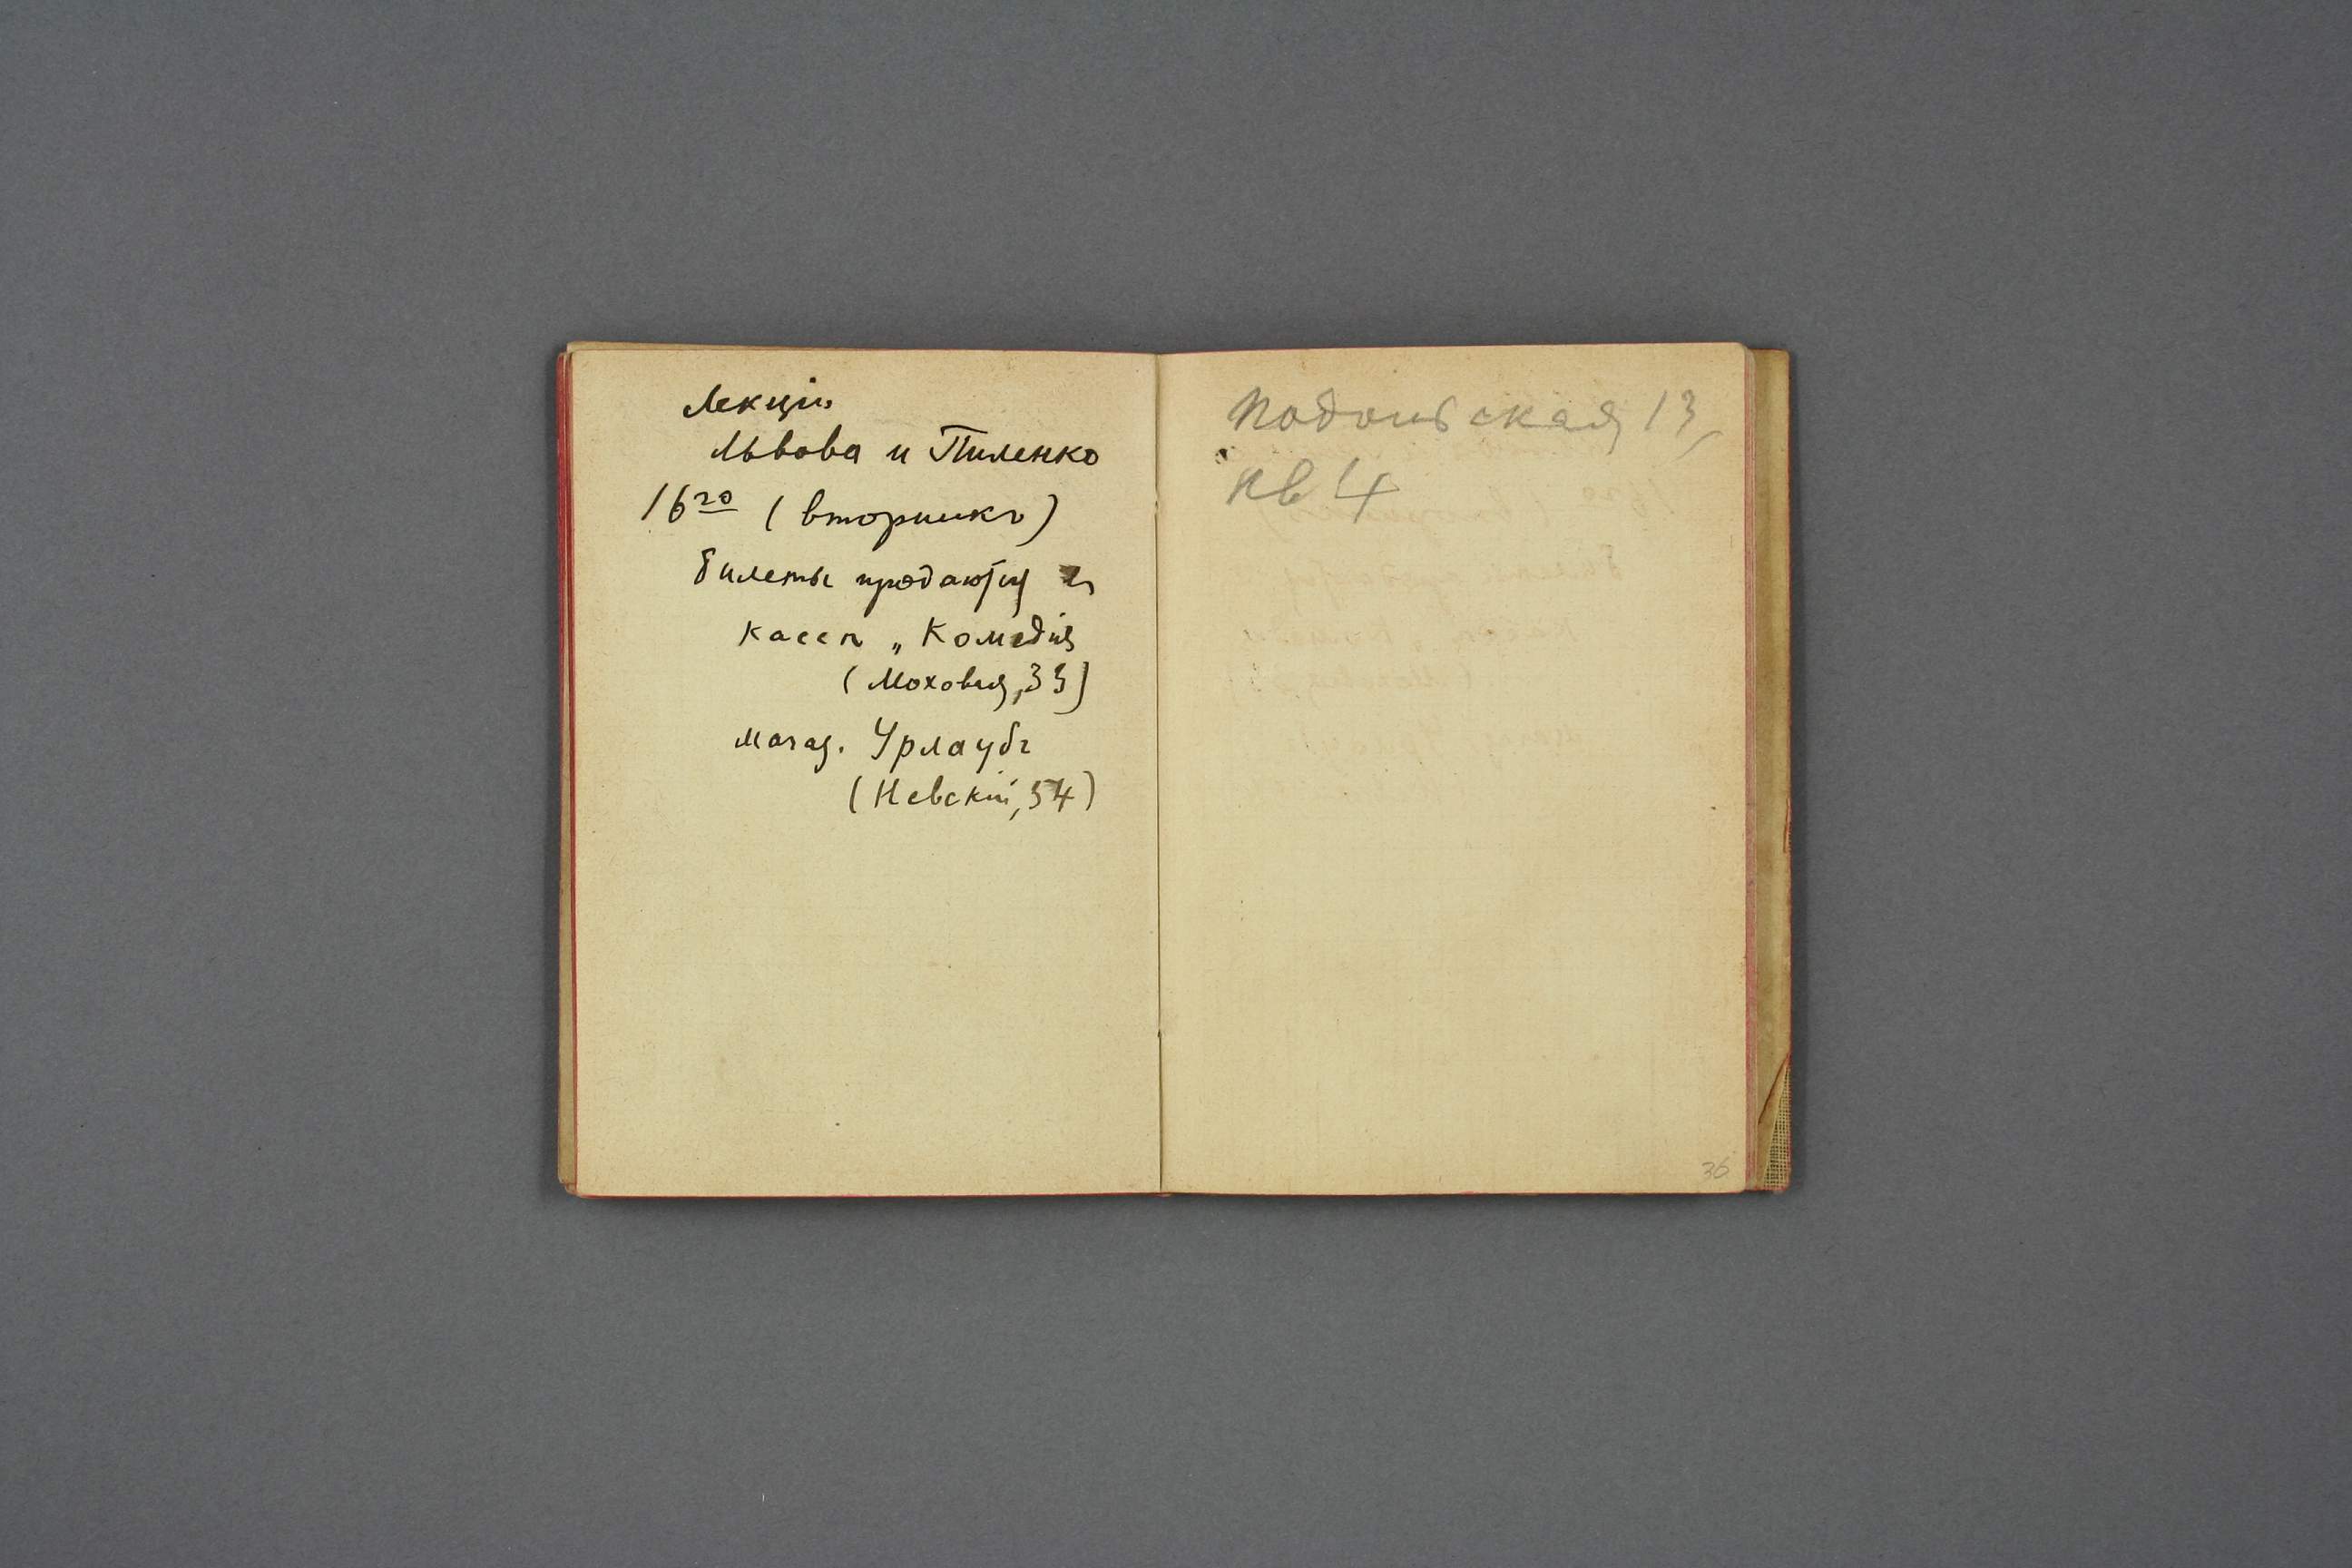 Лекціи
Львова и Пиленко
16го (вторникъ)
Билеты продаются въ
кассѣ „Комедія
(Моховая, 33)
магаз. Урлаубъ
(Невскій, 54)
Подольская 13,
кв 4
36